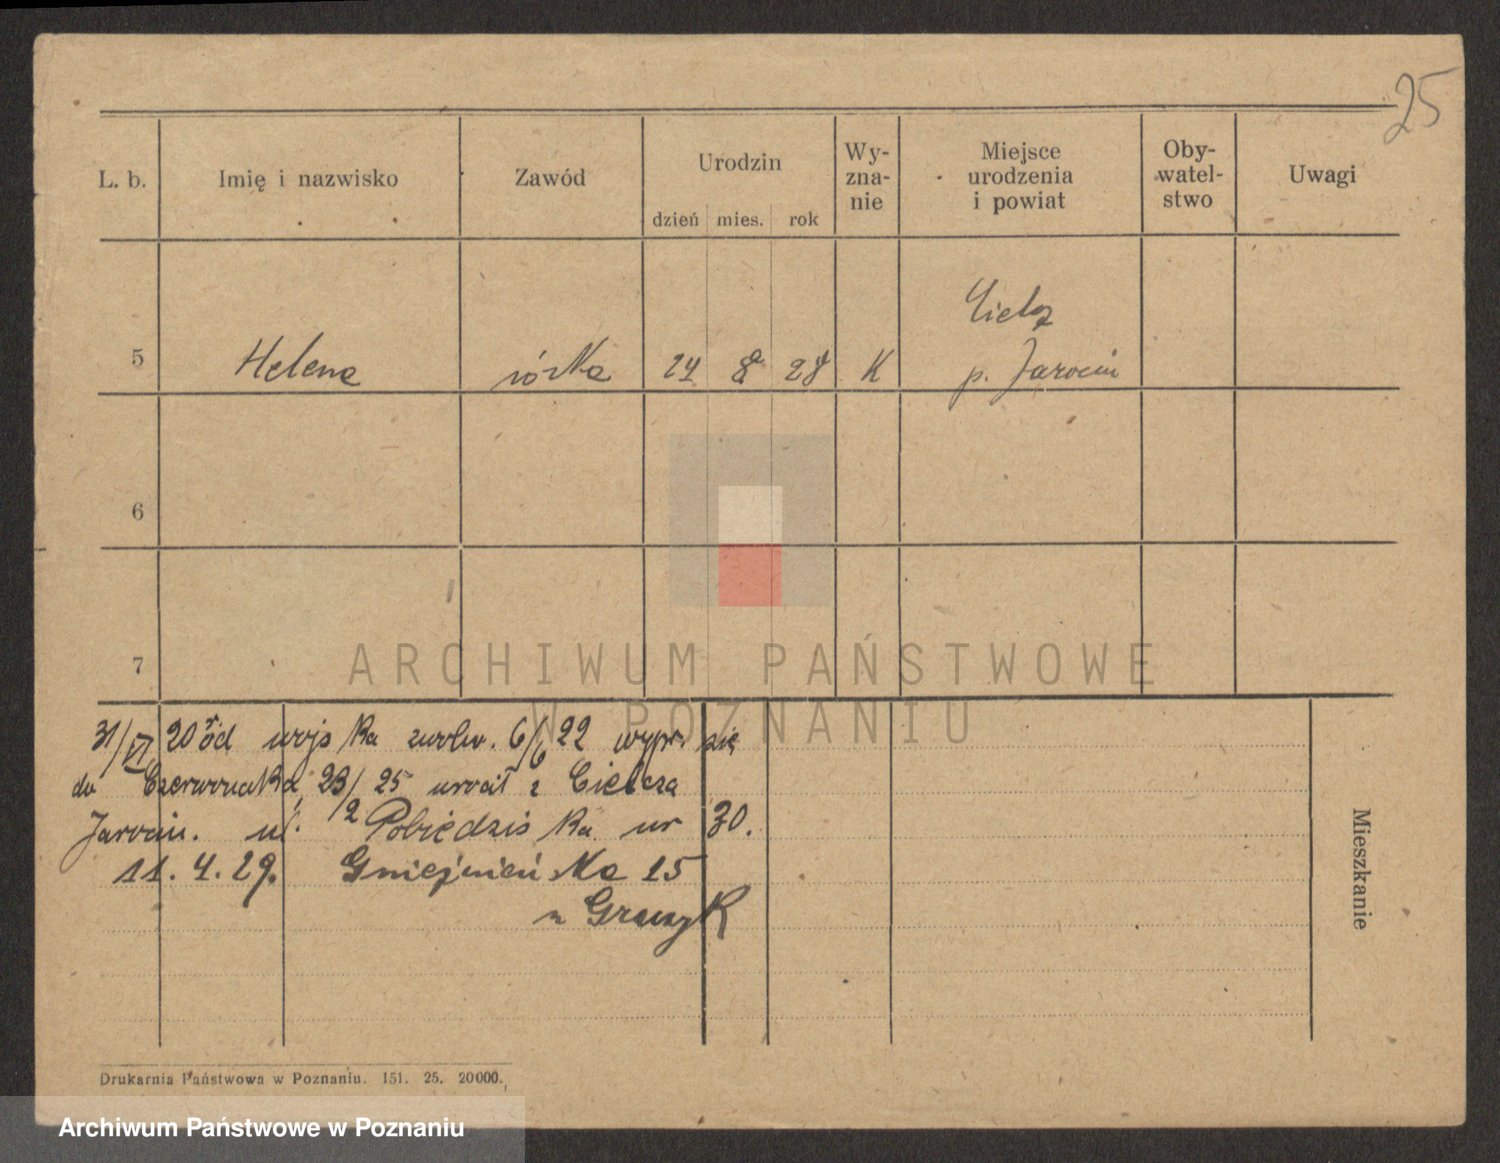 25
L. b. Imię i nazwisko Zawód Urodzin dzień mies. rok Wy- zna- nie Miejsce urodzenia i powiat Oby- watel- stwo Uwagi
5 Helena córka 24 8 28 K p. Jarocin
6
7
ARCHIWUM PAŃSTWOWE
W POZNANIU
31/VI 20 r od wojska zwoln. 6/6 22 wypr. się
do Czerwonaka, 23/2 25 wrócił z Cielcza
Jarocin. ul. Pobiedziska nr 30.
11. 4. 29. Gnieźnieńska 15
Mieszkanie
Drukarnia Państwowa w Poznaniu. 151. 25. 20000.
Archiwum Państwowe w Poznaniu